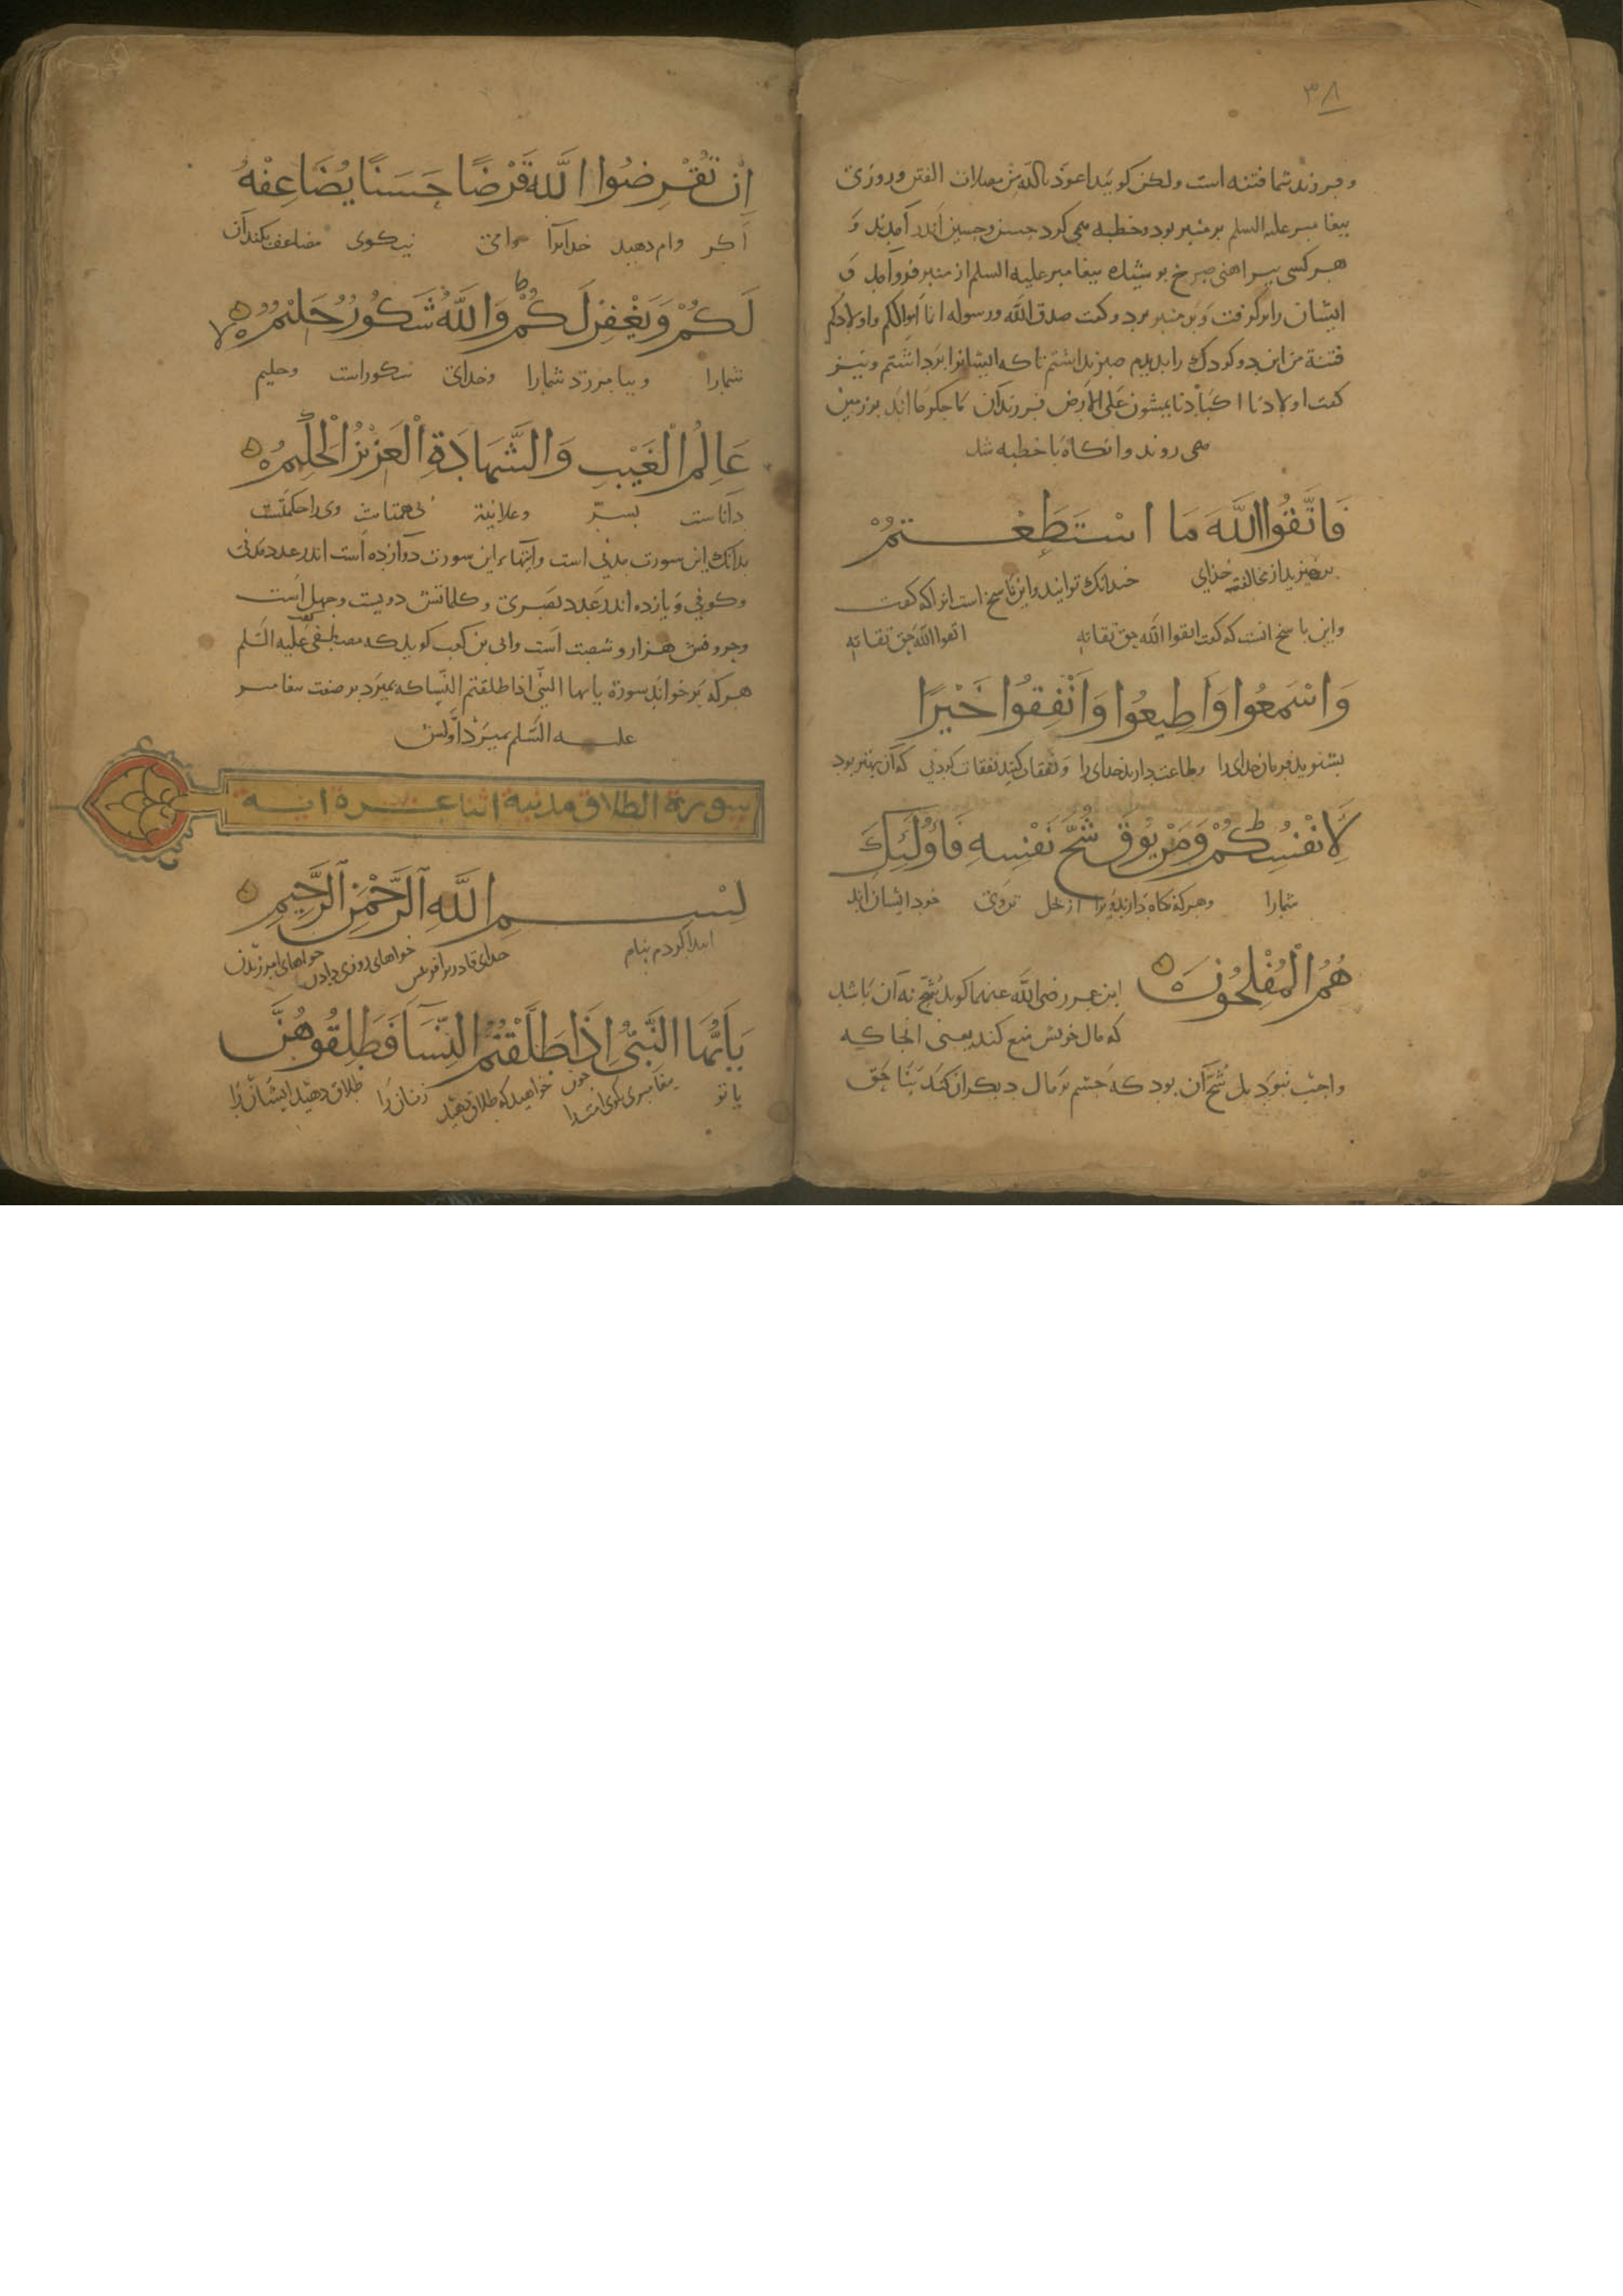 ۳۸
و فرزند شما فتنه است ولكن كوييد اعوذ بالله من معضلات الفتن و روزى
بيغامبر عليه السلم بر منبر بود و خطبه مى كرد حسن و حسين اندر آمدند و
هر كسى بيراهنى سرخ بوشيده بيغامبر عليه السلم از منبر فرو آمد و
ايشان را بر گرفت و بر منبر برد و كفت صدق الله و رسوله انما اموالكم و اولادكم
فتنة من اين دو كودك را بديدم صبر نداشتم تا كه ايشانرا برداشتم و نيز
كفت اولادنا اكبادنا يمشون على الارض فرزندان ما جكر ما اند بر زمين
مى روند و انكاه با خطبه شد
فَاتَّقُوا اللَّهَ مَا اسْتَطَعْتُمْ
ببرهيزيد از مخالفت خداى جندانك توانيد و اين ناسخ است انرا كه كفت
و اين ناسخ انست كه كفت اتقوا الله حق تقاته اتقوا الله حق تقاته
وَاسْمَعُوا وَاَطِيعُوا وَاَنْفِقُوا خَيْرًا
بشنويد فرمان خداى را و طاعت داريد خداى را و نفقات كنيد نفقات كردنى كه آن بهتر بود
لِاَنْفُسِكُمْ وَمَنْ يُوقَ شُحَّ نَفْسِهِ فَاُولَئِكَ
شمارا و هر كه نكاه دارند مرا از بخل تن وى خود ايشان اند
هُمُ الْمُفْلِحُونَ
ابن عمر رضى الله عنهما كويد شح نه آن باشد
كه مال خويش منع كند يعنى انجا كه
واجب نبود بل شح آن بود كه جشم بر مال ديكران كند بنا حق
اِنْ تُقْرِضُوا اللَّهَ قَرْضًا حَسَنًا يُضَاعِفْهُ
اكر وام دهيد خدايرا وامى نيكوى مضاعف بكند آن
لَكُمْ وَيَغْفِرْ لَكُمْ وَاللَّهُ شَكُورٌ حَلِيْمٌ
شمارا و بيامرزد شمارا و خداى شكور است و حليم
عَالِمُ الْغَيْبِ وَالشَّهَادَةِ الْعَزِيْزُ الْحَكِيْمُ
داناست بسرّ و علانية بى همتاست وى را حكمتست
بدانك اين سورت مدنى است و ايتهاء اين سورت دوازده است اندر عدد مدنى
و كوفى و يازده اندر عدد بصرى و كلماتش دويست و جهل است
و حروفش هزار و شصت است و ابى بن كعب كويد كه مصطفى عليه السلم كفت
هر كه بر خواند سورة يا ايها النبى اذا طلقتم النسا كه بميرد بر صفت بيغامبر
عليه السلم بميرد اولش
سورة الطلاق مدنية اثنا عشرة اية
بِسْمِ اللَّهِ الرَّحْمٰنِ الرَّحِيمِ
ابتدا كردم بنام خداى قادر بر آفرينش خواهاى روزى دادن خواهاى امرزيدن
يَاَيُّهَا النَّبِىُّ اِذَا طَلَّقْتُمُ النِّسَآ فَطَلِّقُوهُنَّ
يا تو بيغامبرى بكوى امت را جون خواهيد كه طلاق دهيد زنان را طلاق دهيد ايشان را